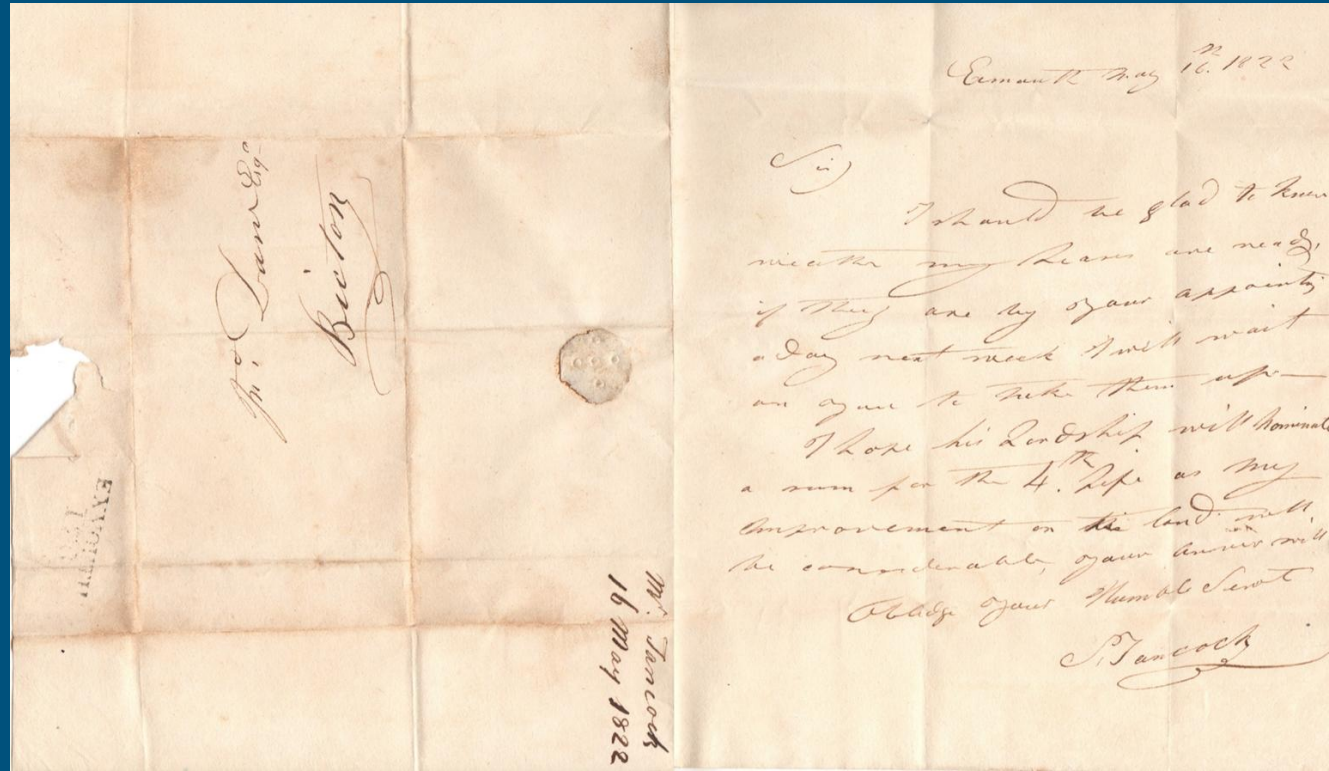 Jno. Daw Esqr
Bicton
Mr. Tancock
16 May 1822
Exmouth May 16th. 1822
Sir
I should be glad to know
weather my leases are ready,
if they are by your appointg
a Day next week I will wait
on you to take them up—
I hope his Lordship will Nominate
a sum for the 4th. Life as my
improvement on the land will
be considerable, your answer will
Obledge your Humble Servt
S. Tancock